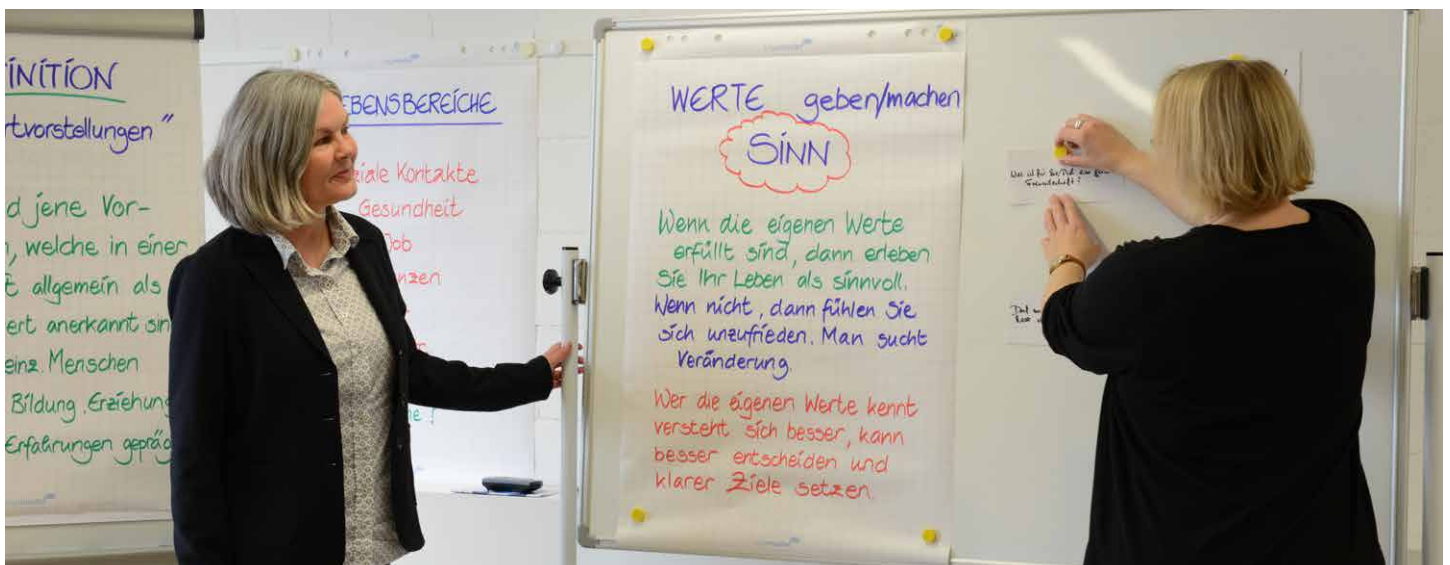 INITION
rtvorstellungen"
d jene Vor-
, welche in einer
t allgemein als
ert anerkannt sin
einz. Menschen
Bildung, Erziehung
Erfahrungen gepräg
EBENSBEREICHE
ziale Kontakte
Gesundheit
Job
nzen
WERTE geben/machen
SINN
Wenn die eigenen Werte
erfüllt sind, dann erleben
Sie Ihr Leben als sinnvoll.
Wenn nicht, dann fühlen Sie
sich unzufrieden. Man sucht
Veränderung.
Wer die eigenen Werte kennt
versteht sich besser, kann
besser entscheiden und
klarer Ziele setzen.
Was ist für Sie/Dich eine
Freundschaft?